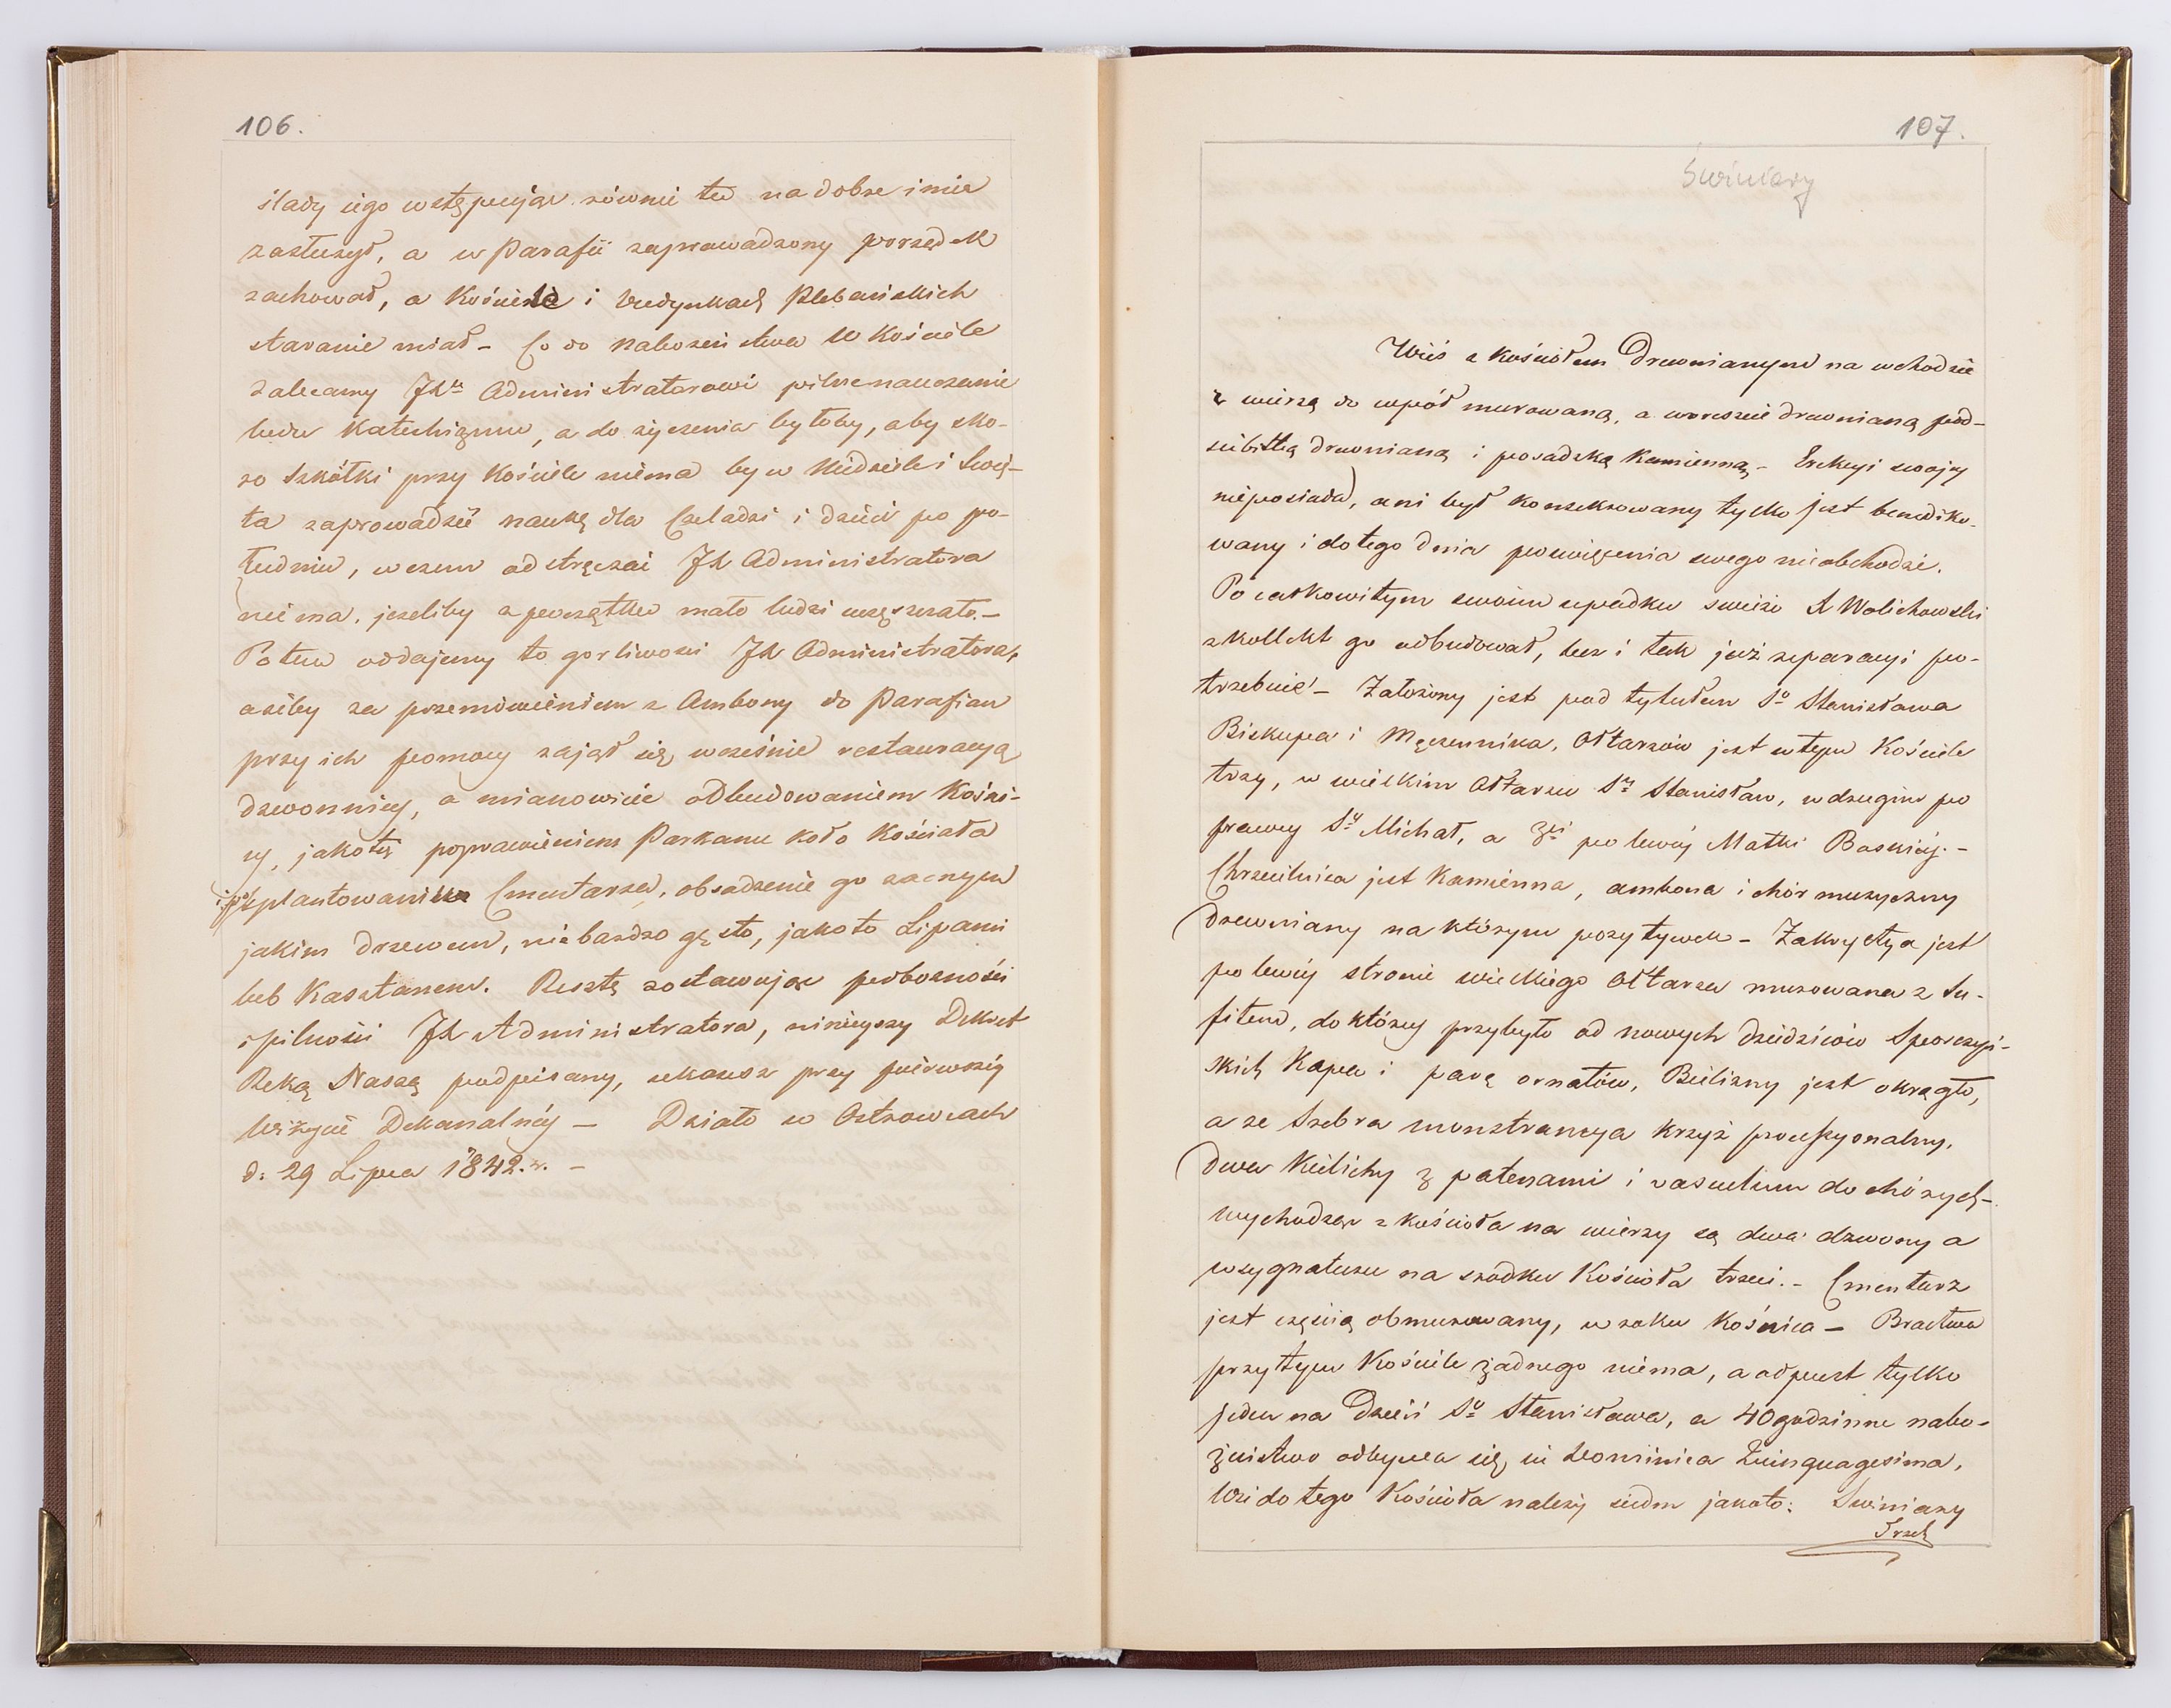 106.
ślady iego wstępując równie też na dobre imie
zasłużył, a w Parafii zaprowadzony porządek
zachował, o Kościele i budynkach Plebańskich
staranie miał – Co do nabożeństwa w Kościele
zalecamy JX Administratorowi pilne nauczanie
ludu Katechizmu, a do życzenia byłoby, aby sko-
ro Szkółki przy Kościele niema by w Niedziele i Świę-
ta zaprowadził naukę dla Czeladzi i dzieci po po-
łudniu, w czem odstręczać JX Administratora
nie ma, jeżeliby z początku mało ludzi uczęszczało. –
Potem oddajemy to gorliwości JX Administratora,
ażeby za przemówieniem z Ambony do Parafian
przy ich pomocy zajął się wcześnie restauracyą
dzwonnicy, a mianowicie odbudowaniem Kośni-
cy, jakoteż poprawieniem Parkanu koło Kościoła
splantowanie Cmentarza, obsadzenie go zacnym
jakim drzewem, nie bardzo gęsto, jako to Lipami
lub Kasztanem. Resztę zostawując pobożności
i pilności JX Administratora, niniejszy Dekret
Ręką Naszą podpisany, ukażesz przy pierwszéj
Wizycie Dekanalnéj – Działo w Ostrowcach
d: 29 Lipca 1842. r. –
107.
Świniary
Wieś z Kościołem Drewnianym na wschodzie
z wieżą do wpół murowaną, a wreszcie drewnianą pod-
siębitką drewnianą i posadzką Kamienną – Erekcyi swojéj
nieposiada, ani był konsekrowany tylko jest benedyko-
wany i do tego dnia poswięcenia swego nieobchodzi.
Po całkowitym swoim upadku swieżo X Wolichowski
z kollekt go odbudował, lecz i tak już reparacyi po-
trzebuie – Założony jest pod tytułem Sº Stanisława
Biskupa i Męczennika, Ołtarzów jest w tym Kościele
trzy, w wielkim Ołtarzu Sty Stanisław, w drugim po
prawey Sty Michał, a 3ci po lewéj Matki Boskiéj. –
Chrzcilnica jest Kamienna, ambona i chór muzyczny
drewniany na którym pozytywek – Zakrystya jest
po lewéj stronie wielkiego Ołtarza murowana z Su-
fitem, do któréj przybyło od nowych dziedziców Skorczyń-
skich Kapa i parę ornatów, Bielizny jest okrągło,
a ze Srebra monstrancya krzyż processyonalny,
dwa Kielichy z patenami i vasculum do chorych –
Wychodząc z kościoła na wieży są dwa dzwony a
w sygnaturze na środku Kościoła trzeci. – Cmentarz
jest częścią obmurowany, w roku Kośnica – Bractwa
przy tym Kościele żadnego niema, a odpust tylko
jeden na Dzień Sº Stanisława, a 40 godzinne nabo-
żeństwo odbywa się in Dominica Quinquagesima,
Wsi do tego Kościoła należy siedm jakoto: Swiniary
Trzeb